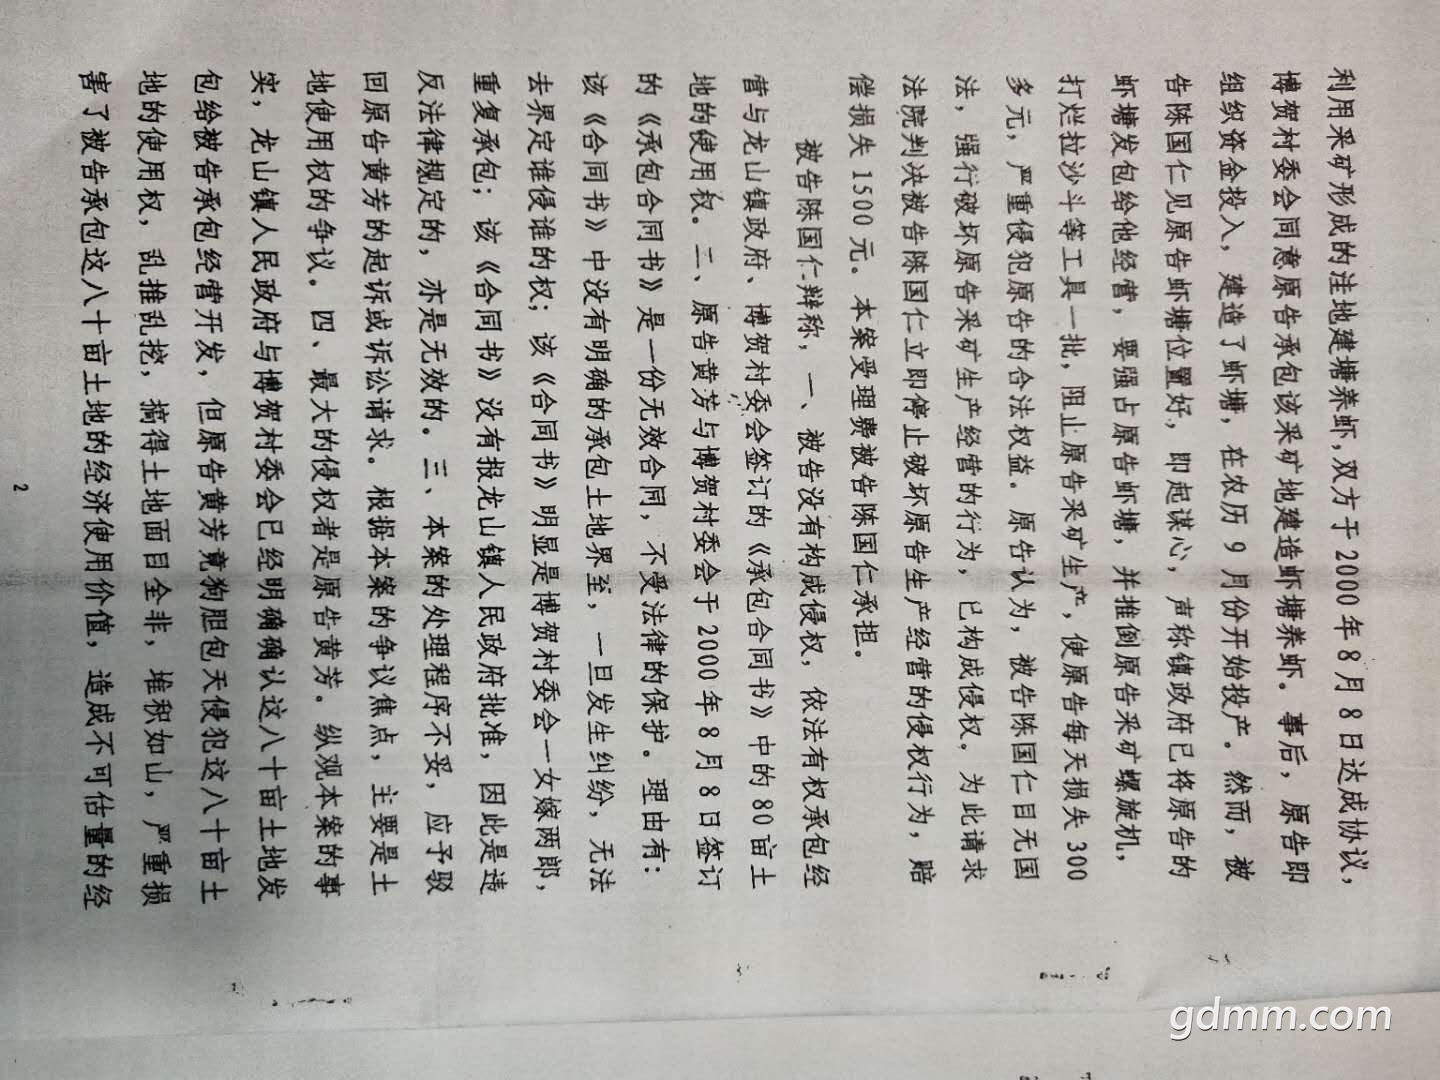 利用采矿形成的洼地建塘养虾,双方于2000年8月8日达成协议,
博贺村委会同意原告承包该采矿地建造虾塘养虾。事后,原告即
组织资金投入,建造了虾塘,在农历9月份开始投产。然而,被
告陈国仁见原告虾塘位置好,即起谋心,声称镇政府已将原告的
虾塘发包给他经营,要强占原告虾塘,并推倒原告采矿螺旋机,
打烂拉沙斗等工具一批,阻止原告采矿生产,使原告每天损失300
多元,严重侵犯原告的合法权益。原告认为,被告陈国仁目无国
法,强行破坏原告采矿生产经营的行为,已构成侵权。为此请求
法院判决被告陈国仁立即停止破坏原告生产经营的侵权行为,赔
偿损失1500元。本案受理费被告陈国仁承担。
被告陈国仁辩称,一、被告没有构成侵权,依法有权承包经
营与龙山镇政府、博贺村委会签订的《承包合同书》中的80亩土
地的使用权。二、原告黄芳与博贺村委会于2000年8月8日签订
的《承包合同书》是一份无效合同,不受法律的保护。理由有:
该《合同书》中没有明确的承包土地界至,一旦发生纠纷,无法
去界定谁侵谁的权;该《合同书》明显是博贺村委会一女嫁两郎,
重复承包;该《合同书》没有报龙山镇人民政府批准,因此是违
反法律规定的,亦是无效的。三、本案的处理程序不妥,应予驳
回原告黄芳的起诉或诉讼请求。根据本案的争议焦点,主要是土
地使用权的争议。四、最大的侵权者是原告黄芳。纵观本案的事
实,龙山镇人民政府与博贺村委会已经明确确认这八十亩土地发
包给被告承包经营开发,但原告黄芳竟狗胆包天侵犯这八十亩土
地的使用权,乱推乱挖,搞得土地面目全非,堆积如山,严重损
害了被告承包这八十亩土地的经济使用价值,造成不可估量的经
2
gdmm.com